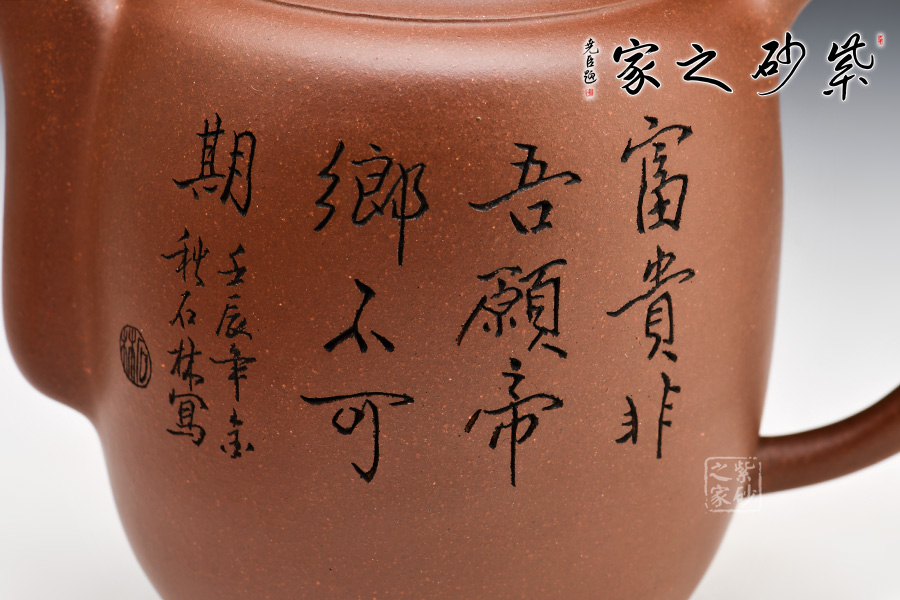 紫砂之家
堯臣題
富貴非
吾願帝
鄉不可
期
壬辰年金
秋石林寫
石林
紫砂
之家